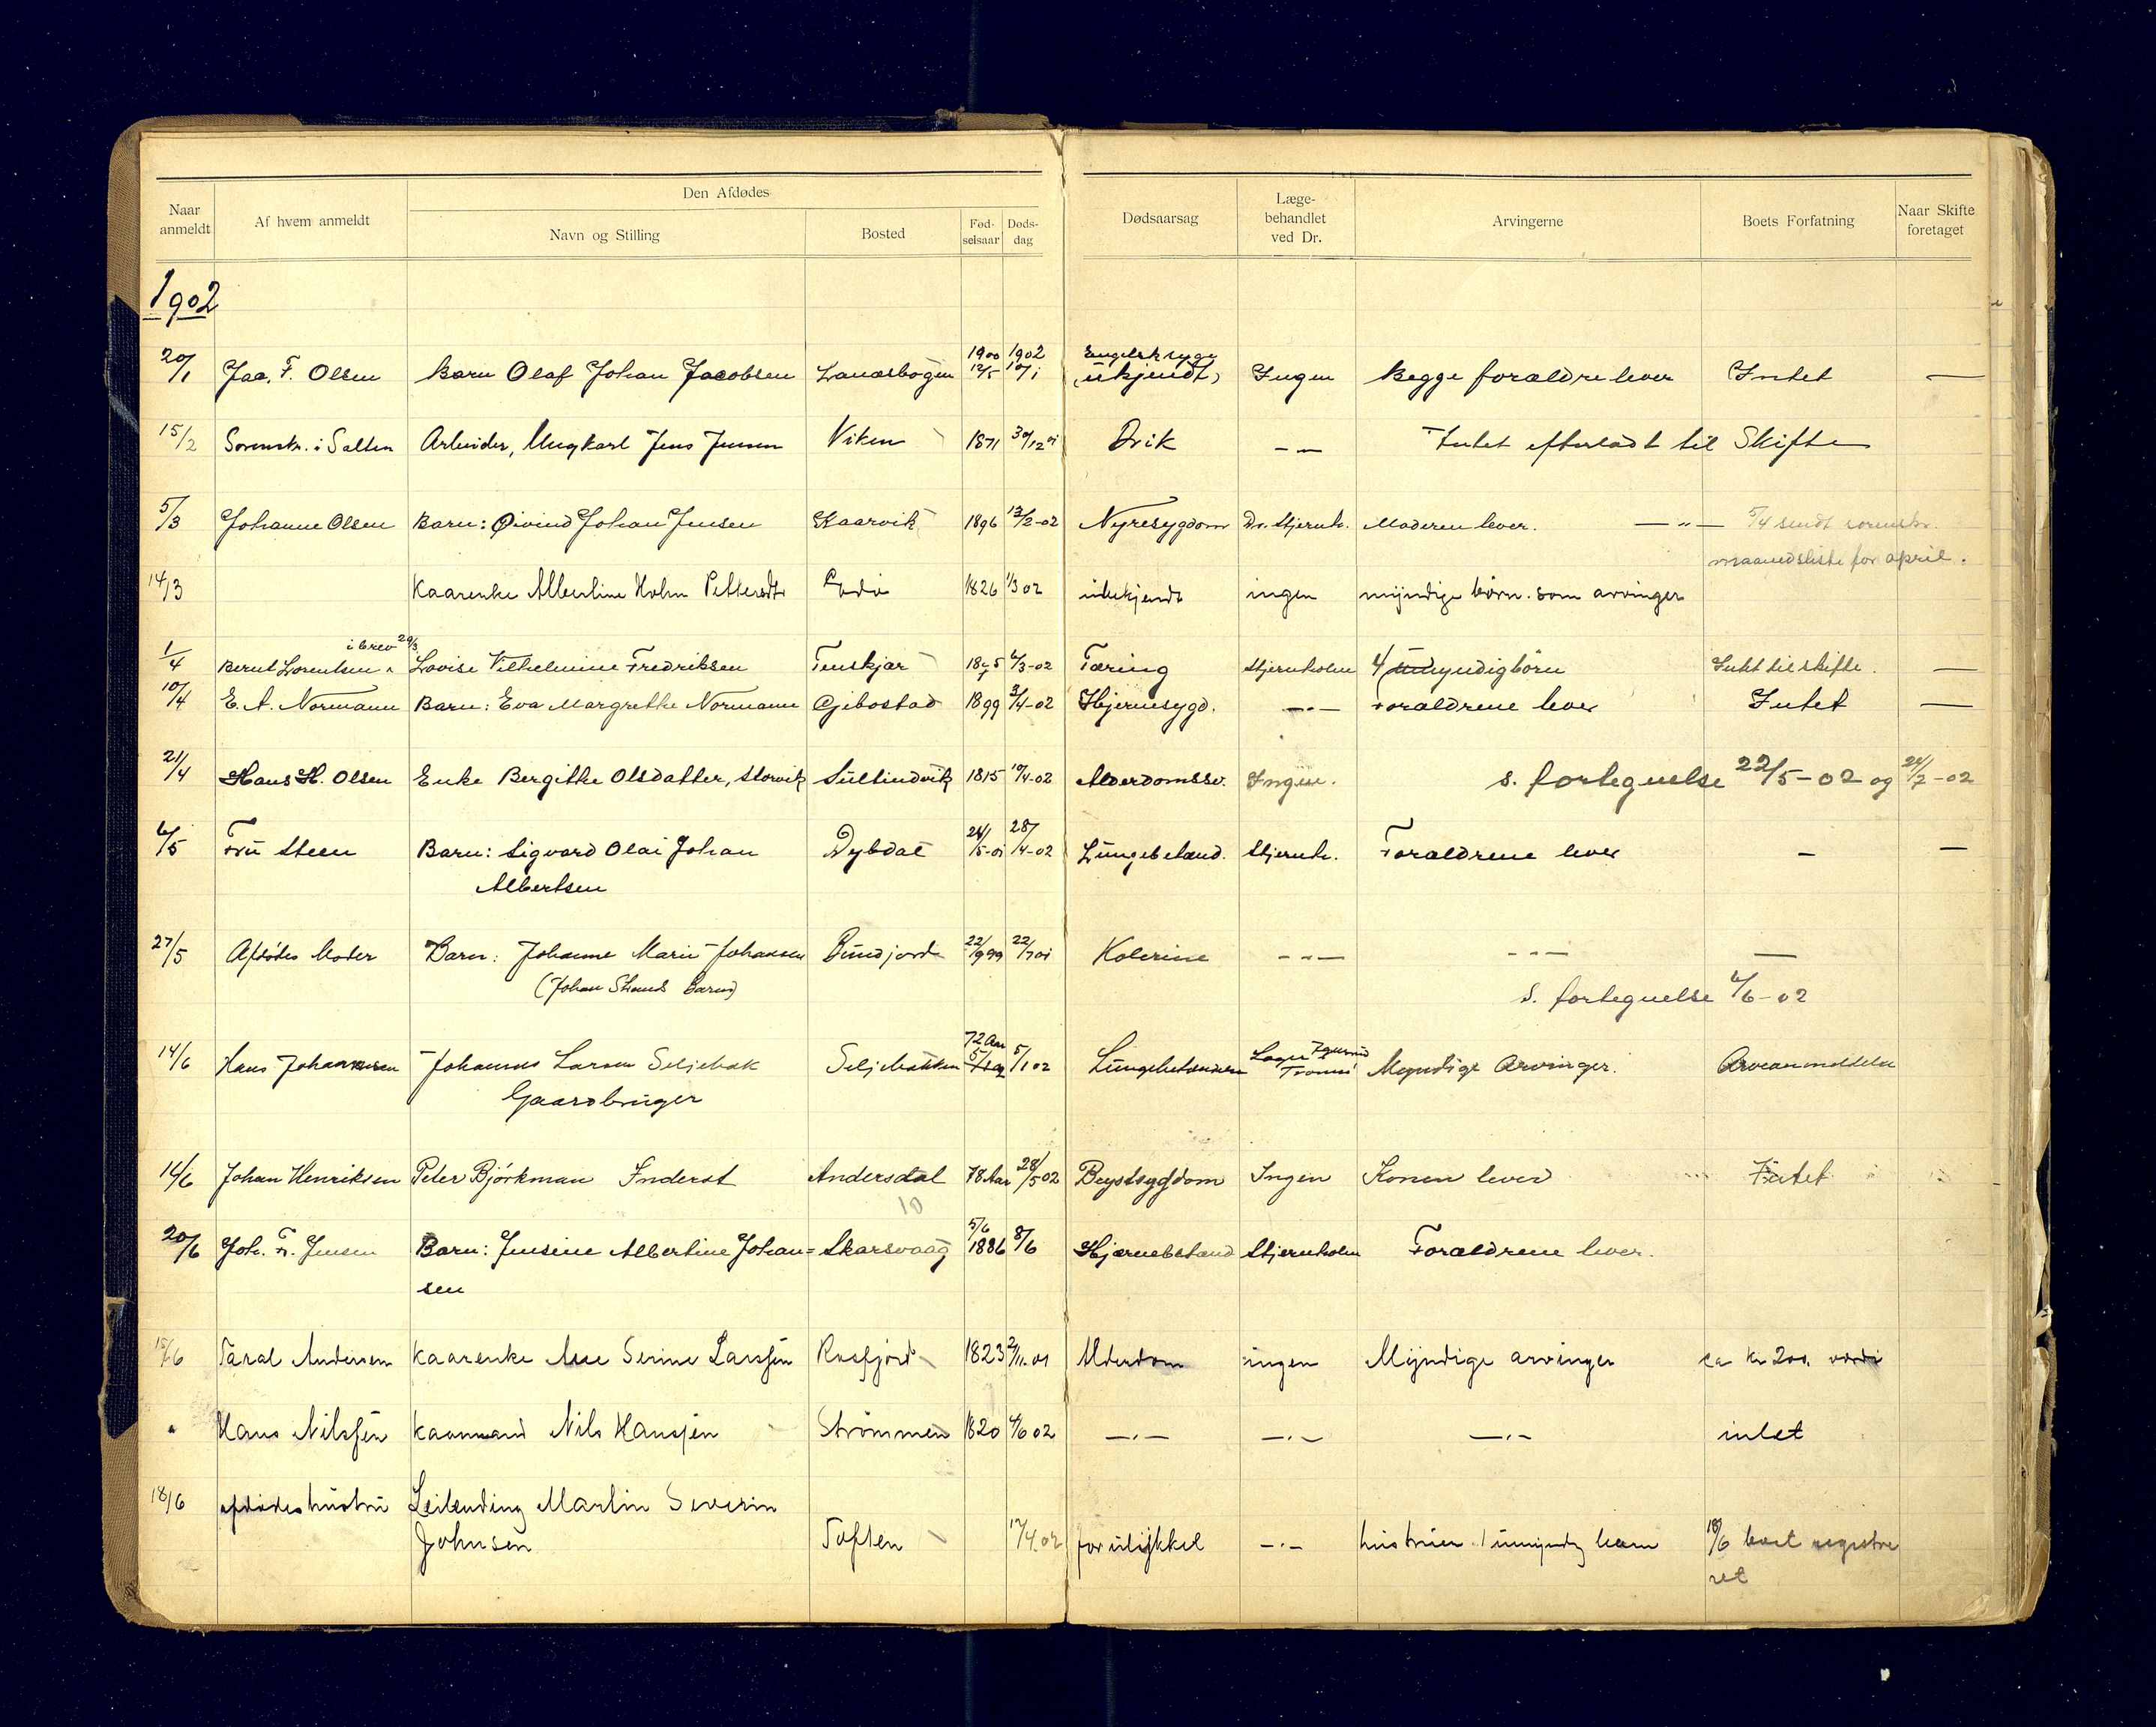 Den Afdødes
Naar anmeldt | Af hvem anmeldt | Navn og Stilling | Bosted | Fød-selsaar | Døds-dag | Dødsaarsag | Læge-behandlet ved Dr. | Arvingerne | Boets Forfatning | Naar Skifte foretaget
1902
1900 1902 Engelsk syge
20/1 Jac. F. Olsen Barn Olaf Johan Jacobsen 12/5 10/1 (ukjendt) Ingen Begge forældre lever Intet —
15/2 Sorenskr. i Salten Arbeider, Ungkarl Jens Jensen Viken 1871 30/12 01 Drik — — Intet efterladt til Skifte
5/3 Johanne Olsen Barn: Øivind Johan Jensen Kaarvik 1896 13/2-02 Nyresygdom Dr. Stjernh. Moderen lever. — " — 5/4 sendt sorenskr.
maanedsliste for april.
14/3 Kaarenke Albertine Holm Pettersdtr 1826 1/3 02 ubekjendt ingen myndige børn som arvinger
i brev 29/3
1/4 Bernt Lorentsen Lovise Vilhelmine Fredriksen Tenskjær 6/3-02 Tæring Stjernholm 4 umyndig børn Intet til skifte. —
10/4 E. A. Normann Barn: Eva Margrethe Normann Gibostad 1899 3/4-02 Hjernesygd. — " — Forældrene lever Intet —
21/4 Hans H. Olsen Enke Bergitte Olsdatter, Storvik Sultindvik 1815 10/4-02 Alderdomssv. Ingen. s. fortegnelse 22/5-02 og 2-02
6/5 Fru Steen Barn: Sigvard Olai Johan Dybdal 28/4-02 Lungebetænd. Stjernh. Forældrene lever — —
Albertsen
27/5 Afdødes Moder Barn: Johanne Marie Johansen Bundjord 22/9 99 22/7 01 Kolerine — " — — " — —
(Johan Strands barn)
s. fortegnelse 6/6-02
72 Aar
14/6 Hans Johannesen Johannes Larsen Seljebak Seljebakken 5/1 02 Lungebetændelse Tromsø Myndige Arvinger. Arveanmeldelse
Gaardbruger
14/6 Johan Henriksen Peter Bjørkman Inderst Andersdal 78 Aar 28/5 02 Brystsygdom Ingen Konen lever Intet
10
5/6
20/6 Joh. Fr. Jensen Barn: Jensine Albertine Johan= Skarsvaag 1886 8/6 Hjernebetænd Stjernholm Forældrene lever.
sen
15/6 Taral Andersen Kaarenke Ane Serine Larssen Rossfjord 1823 2/11-01 Alderdom ingen Myndige arvinger ca kr 200, værdi
" Hans Nilssen Kaarmand Nils Hanssen Strømmen 1820 4/6 02 — " — — " — — " — intet
18/6 afdødes hustru Leilending Martin Severin
Johnsen Toften 17/4.02 forulykket — " — hustruen 1 umyndig barn 18/6 boet registre
ret